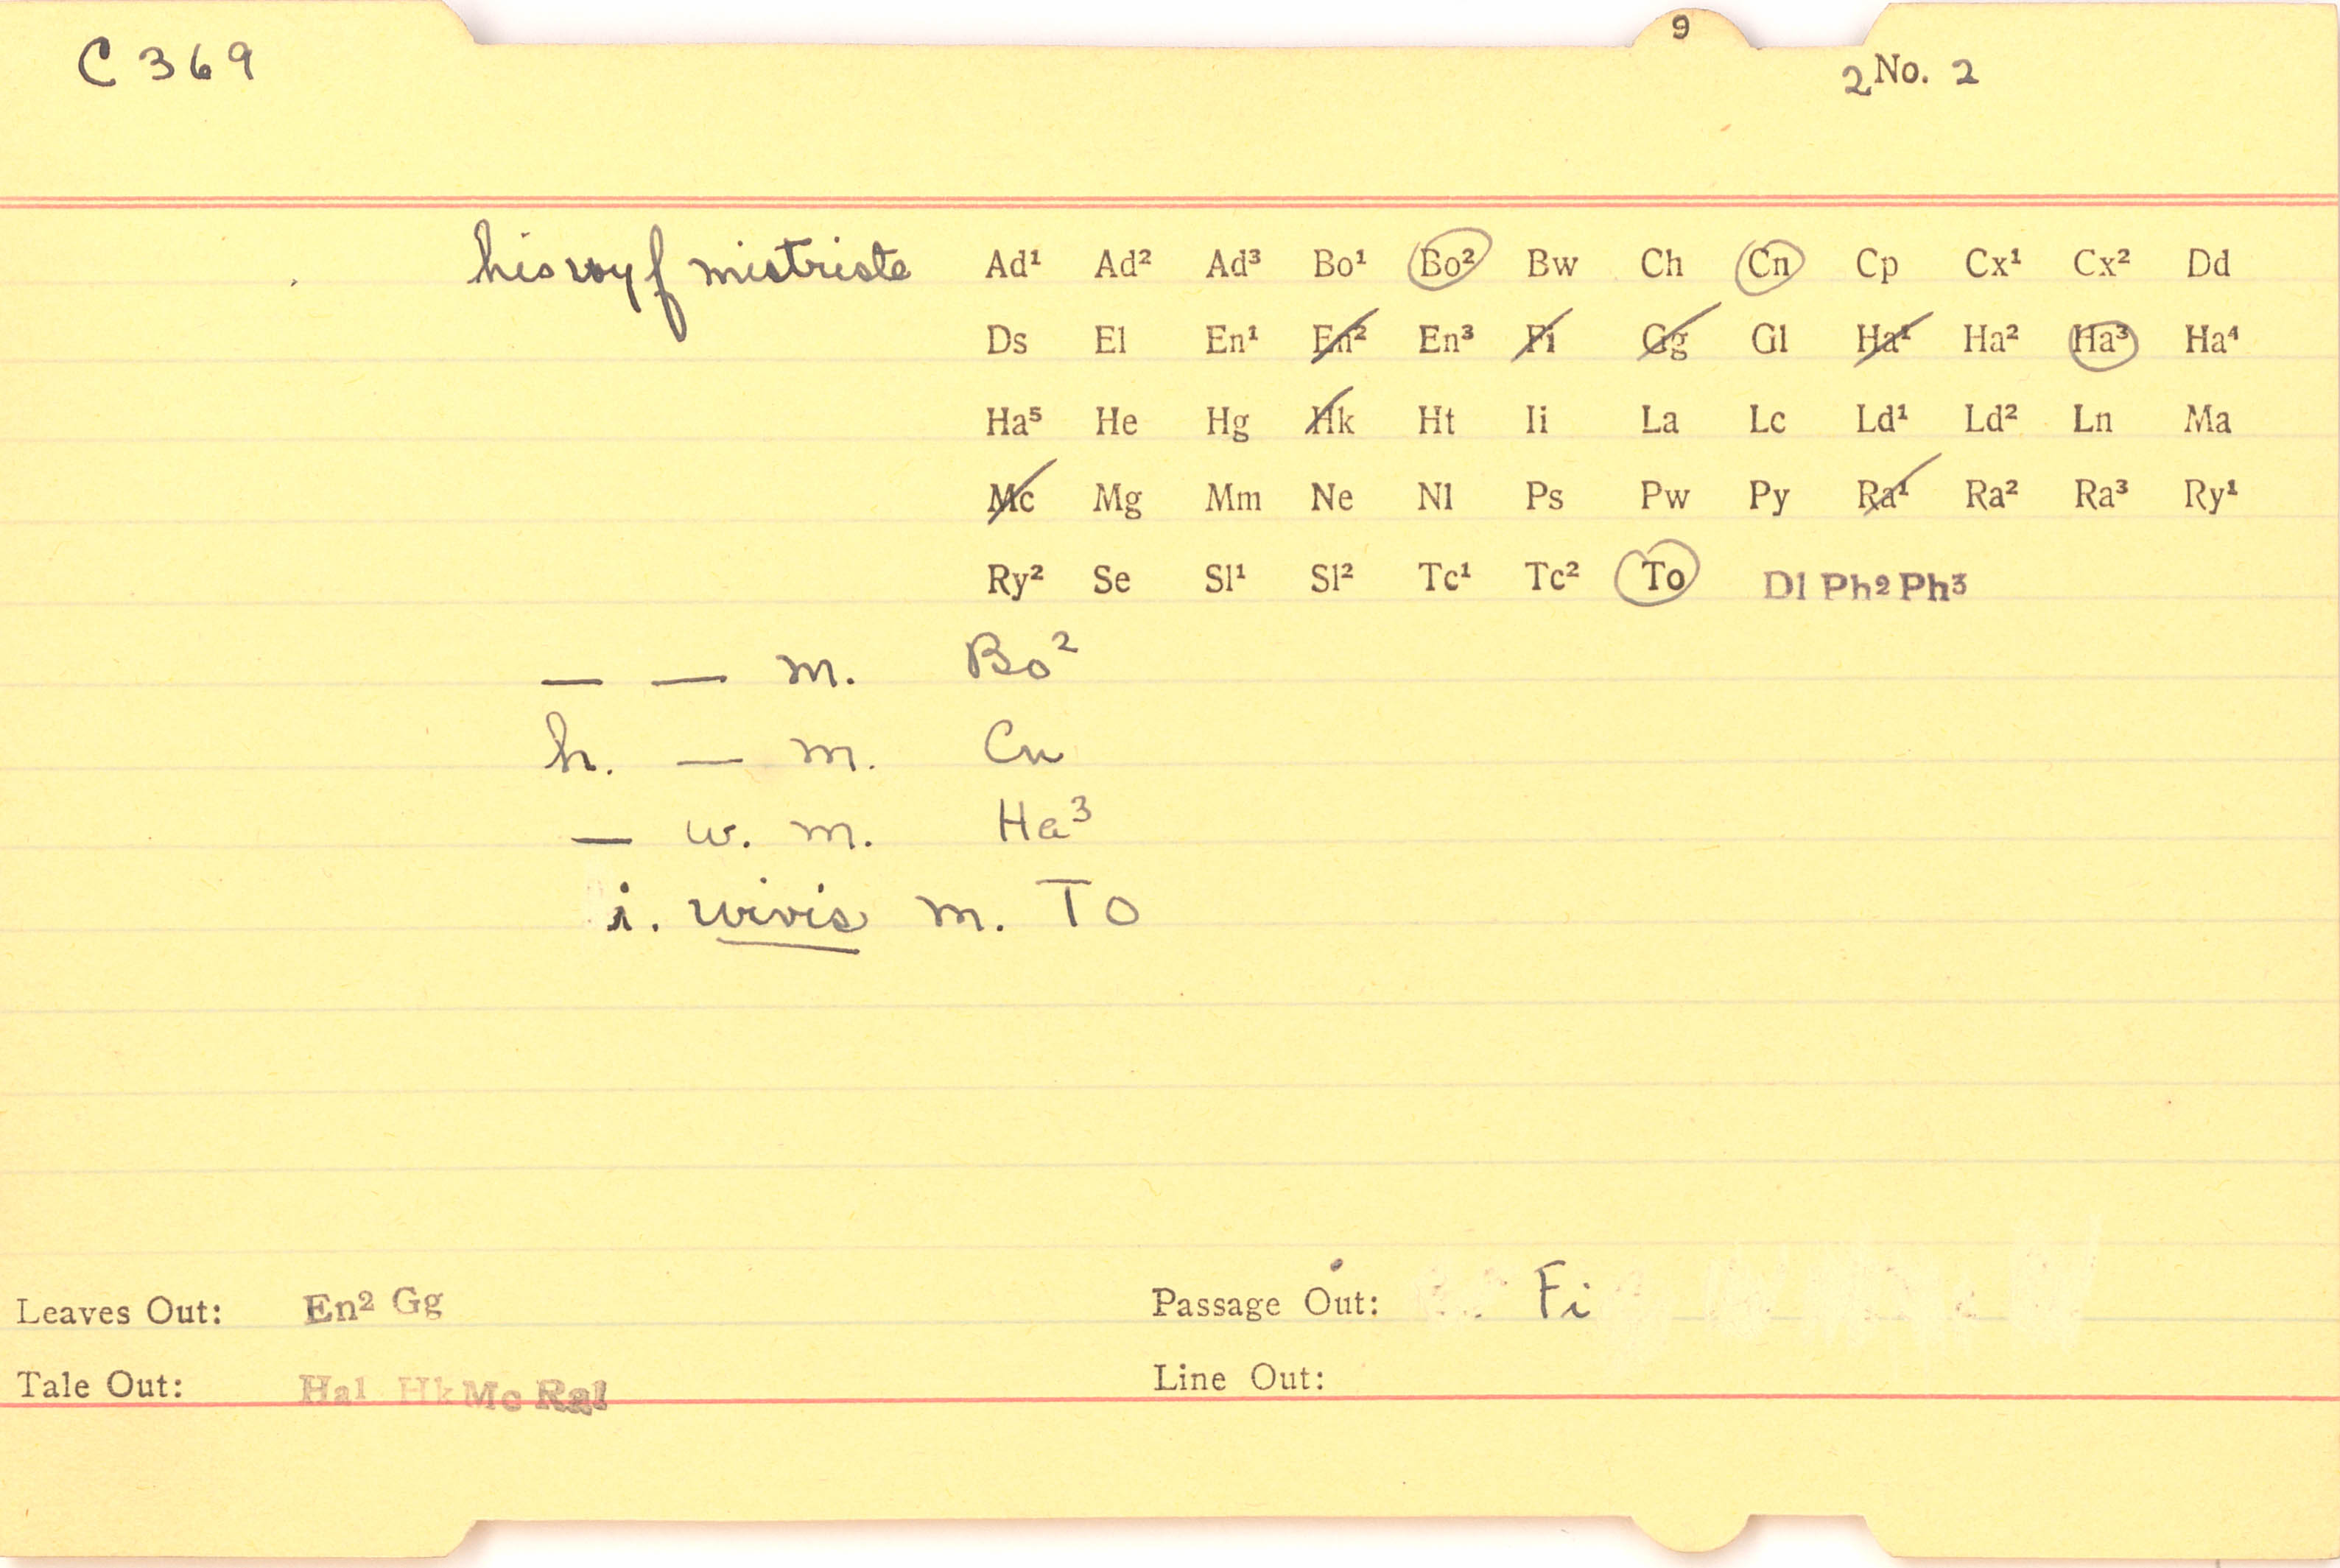 9
C 369
2 No. 2
his wyf mistriste
Ad¹ Ad² Ad³ Bo¹ Bo² Bw Ch Cn Cp Cx¹ Cx² Dd
Ds El En¹ En² En³ Fi Gg Gl Ha¹ Ha² Ha³ Ha⁴
Ha⁵ He Hg Hk Ht Ii La Lc Ld¹ Ld² Ln Ma
Mc Mg Mm Ne Nl Ps Pw Py Ra¹ Ra² Ra³ Ry¹
Ry² Se Sl¹ Sl² Tc¹ Tc² To Dl Ph2 Ph3
— — m. Bo²
h. — m. Cn
— w. m. Ha³
i. wivis m. To
Leaves Out: En² Gg
Passage Out: Fi
Tale Out: Ha1 Hk Mc Ra1
Line Out: